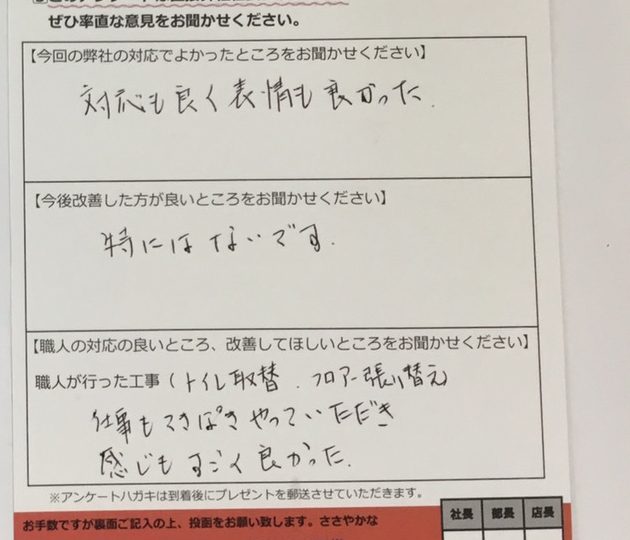 ぜひ率直な意見をお聞かせください。
【今回の弊社の対応でよかったところをお聞かせください】
対応も良く表情も良かった.
【今後改善した方が良いところをお聞かせください】
特にはないです.
【職人の対応の良いところ、改善してほしいところをお聞かせください】
職人が行った工事(トイレ取替.フロアー張り替え)
仕事もてきぱきやっていただき
感じもすごく良かった.
※アンケートハガキは到着後にプレゼントを郵送させていただきます。
お手数ですが裏面ご記入の上、投函をお願い致します。ささやかな
社長 部長 店長